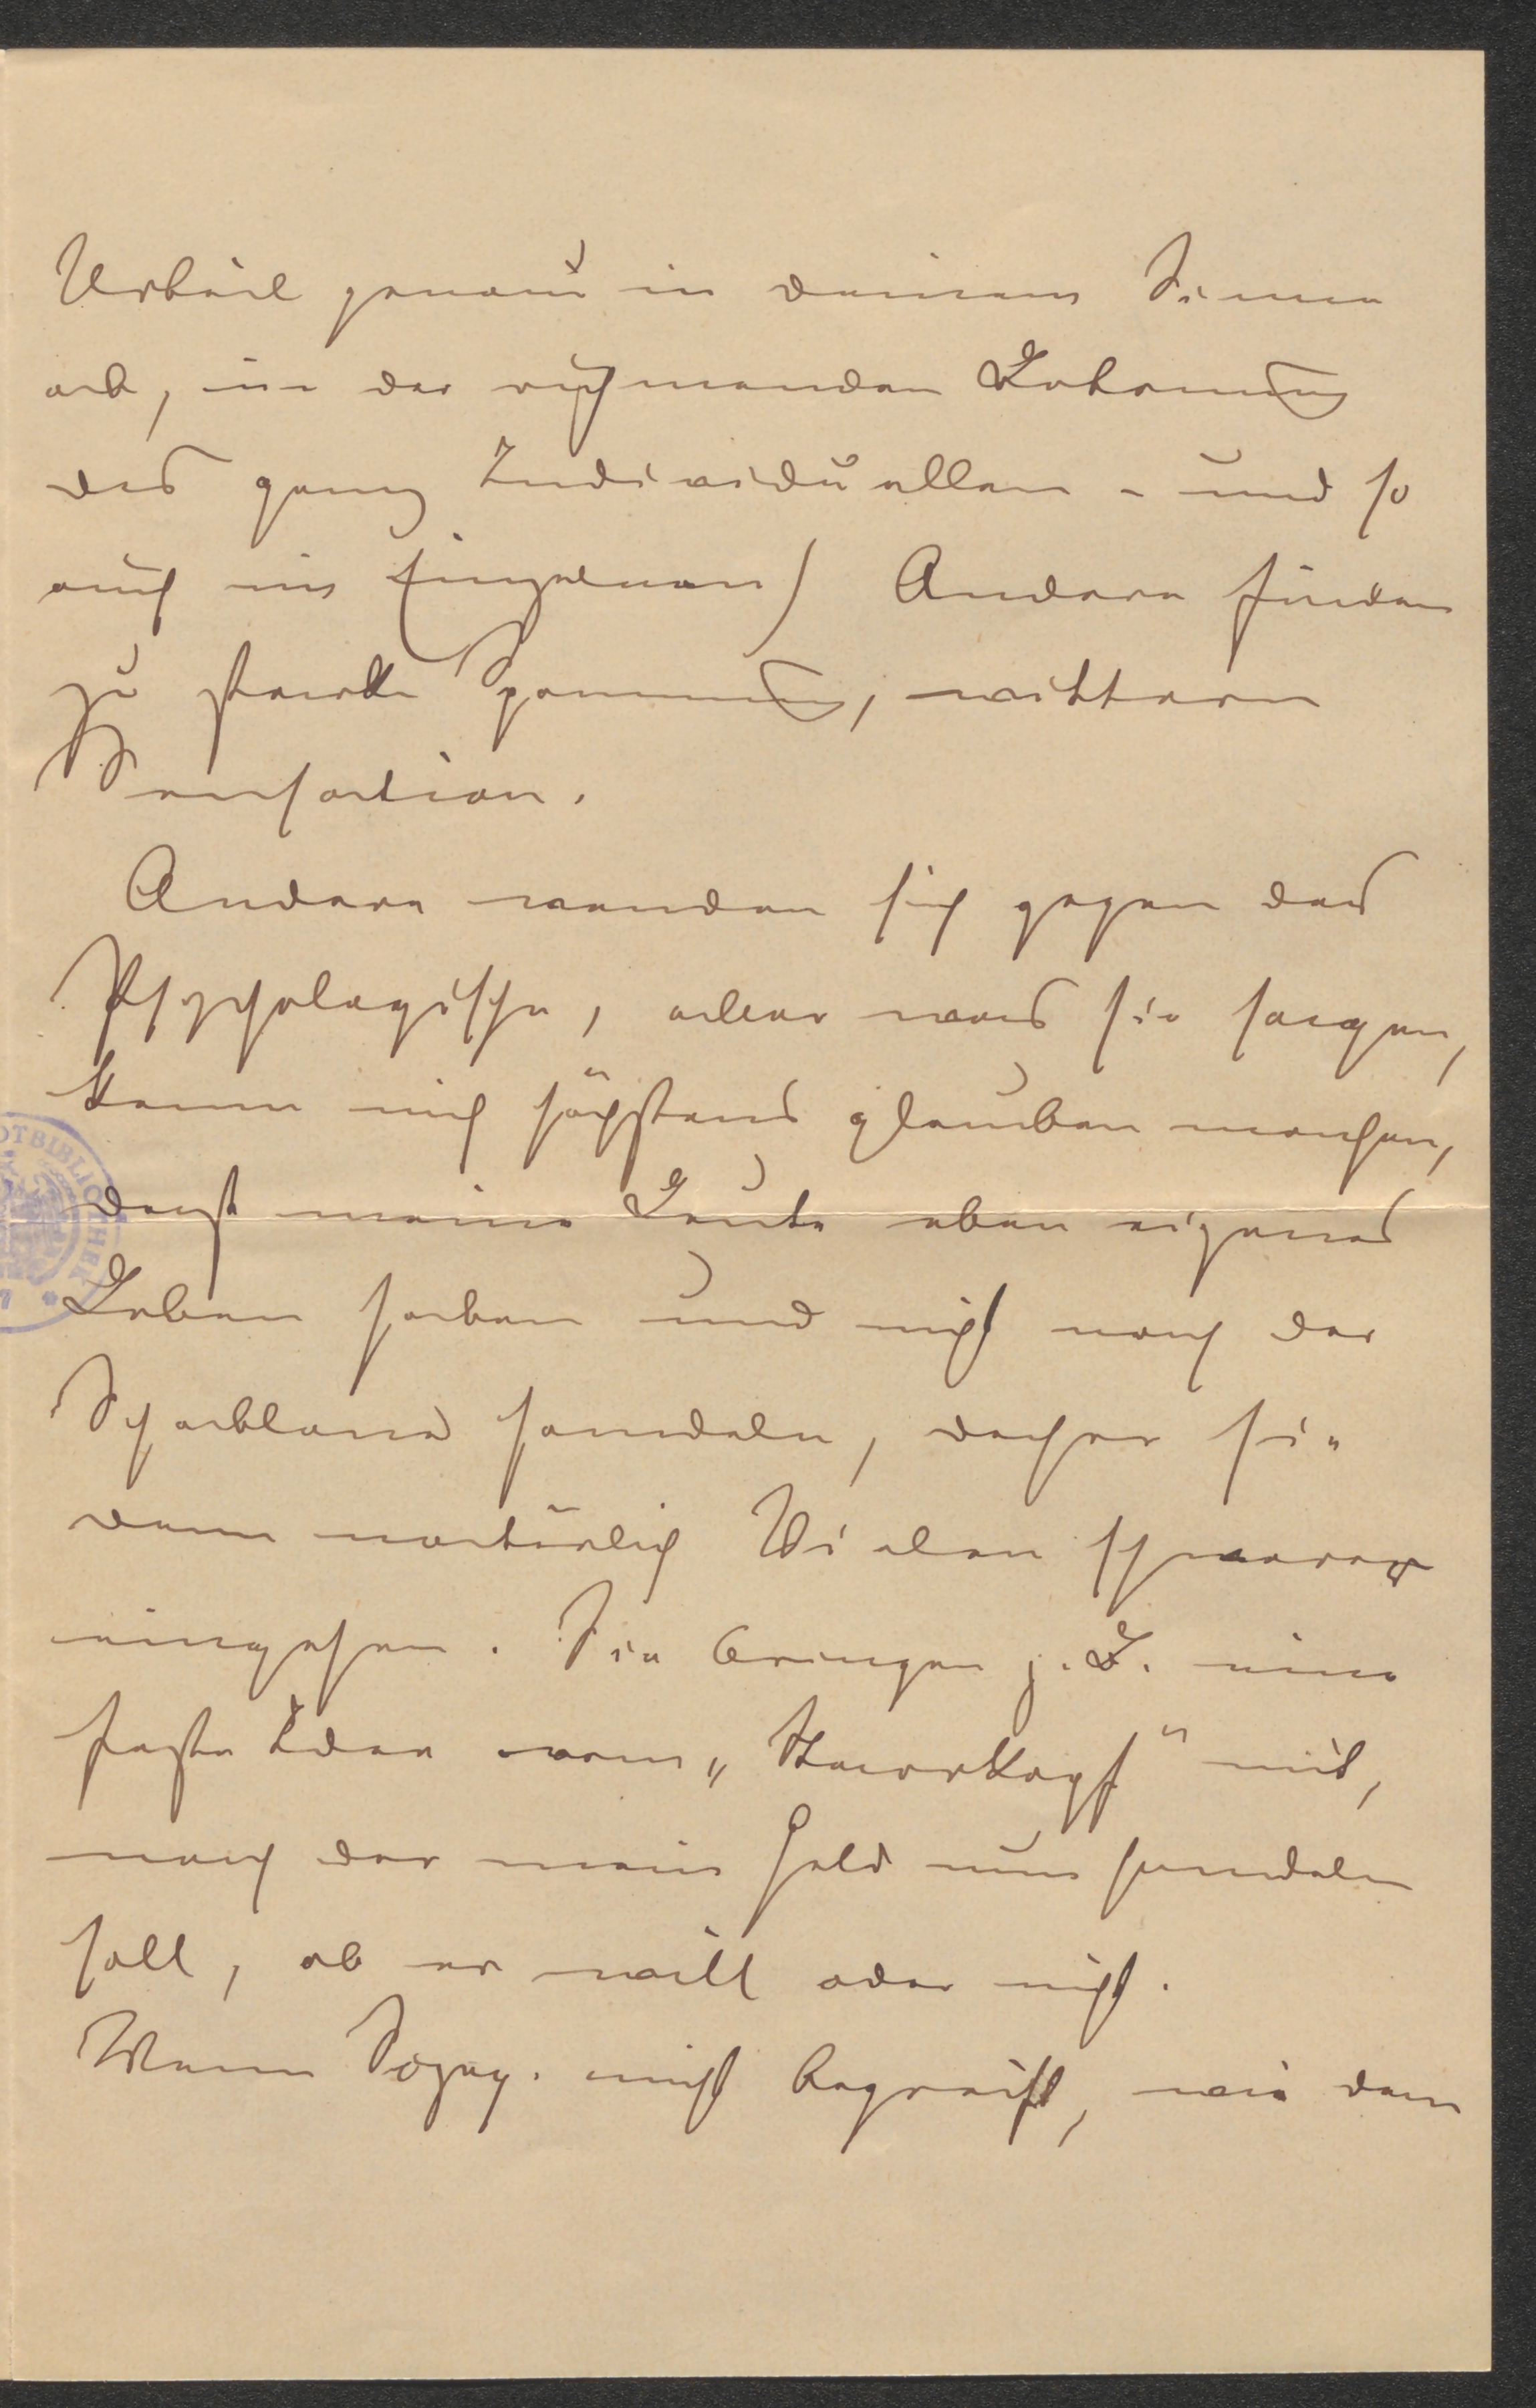 Urteil genau in deinem Sinne
ab, in der rühmenden Betonung
des ganz Individuellen – und so
auch im Einzelnen) Andere finden
zu starke Spannung, wittern
Sensation.
Andere wenden sich gegen das
Psychologische, aber was sie sagen,
kann mich höchstens glauben machen,
daß meine Leute eben eigenes
Leben haben und nicht nach der
Schablone handeln, daher sie
dann natürlich Vielen schwerer
eingehen. Sie bringen z. B. eine
feste Idee vom „Starrkopf“ mit,
nach der mein Held nun handeln
soll, ob er will oder nicht.
Wenn Sozag. nicht begreift, wie dem